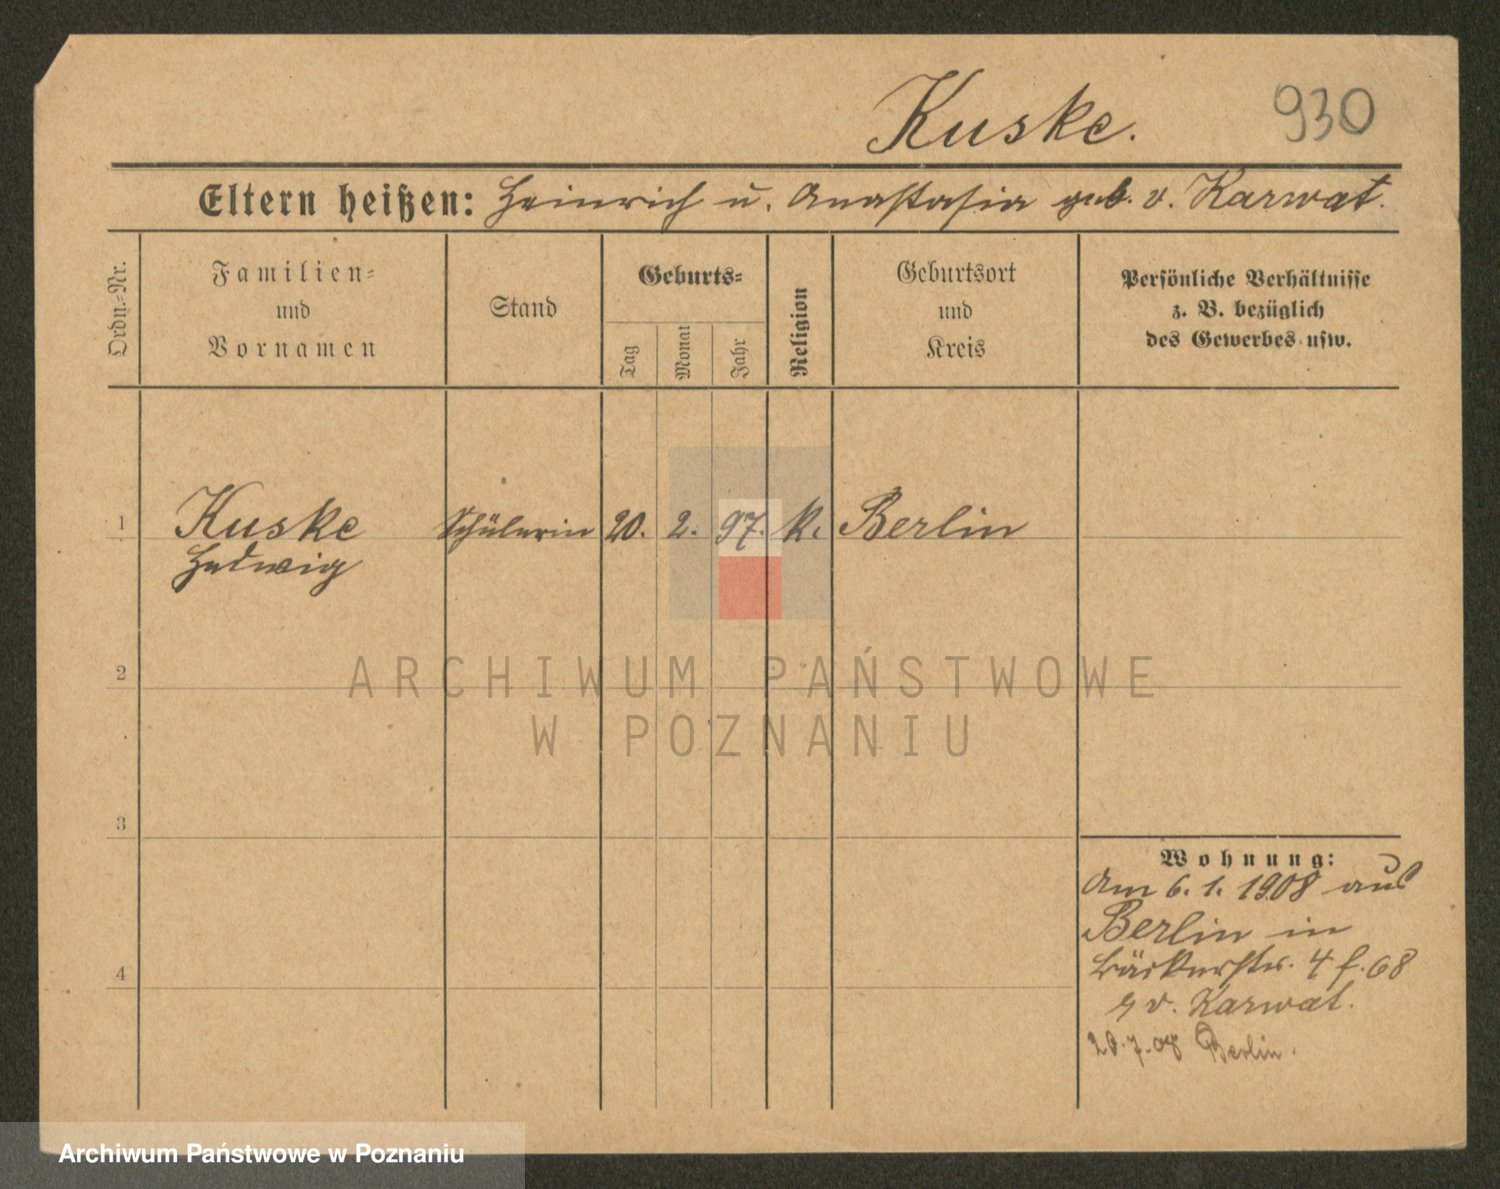 Kuske.
930
Eltern heißen: Heinrich u. Anastasia geb. v. Karwat.
Ordn.-Nr.
Familien-
und
Vornamen
Stand
Geburts-
Tag
Monat
Jahr
Religion
Geburtsort
und
Kreis
Persönliche Verhältnisse
z. B. bezüglich
des Gewerbes usw.
1
Kuske
Hedwig
Schülerin
20. 2. 97. k.
Berlin
2
ARCHIWUM PAŃSTWOWE
W POZNANIU
3
4
Wohnung:
Am 6. 1. 1908 aus
Berlin in
Bäckerstr. 4 f. 68
v. Karwat.
20.7.08 Berlin.
Archiwum Państwowe w Poznaniu